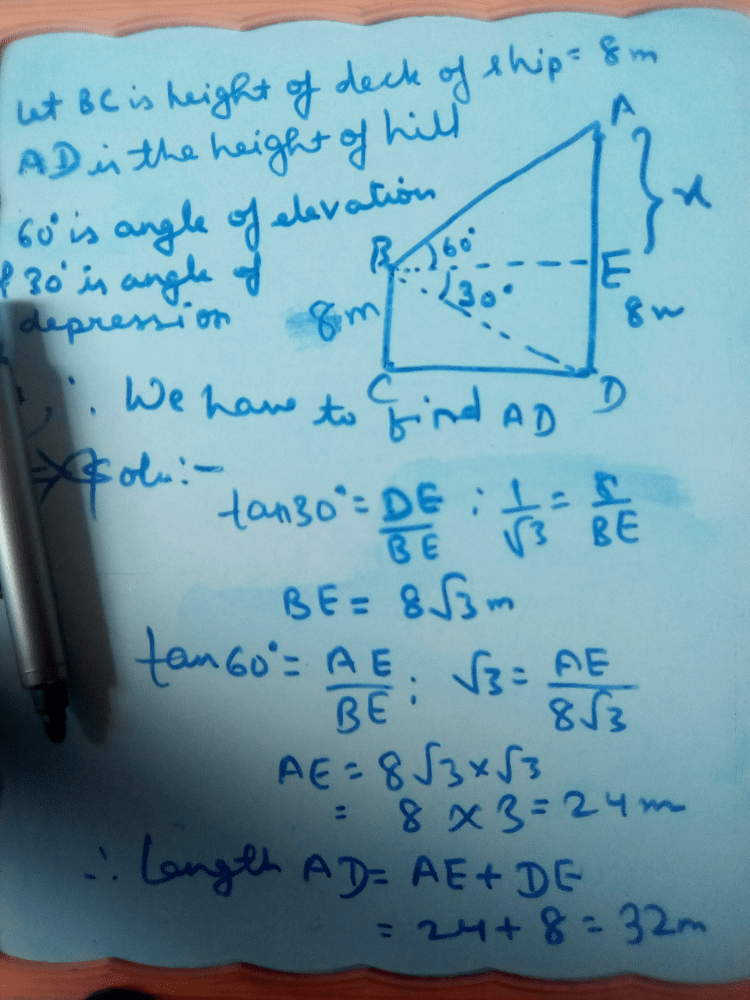 Let BC is height of deck of ship = 8m
AD is the height of hill
60° is angle of elevation
& 30° is angle of
depression
A
x
B
60°
E
30°
8m
8m
C
D
∴ We have to find AD
Soln:-
tan30° = DE/BE ; 1/√3 = 8/BE
BE = 8√3 m
tan60° = AE/BE ; √3 = AE/8√3
AE = 8√3 × √3
= 8 × 3 = 24m
∴ Length AD = AE + DE
= 24 + 8 = 32m